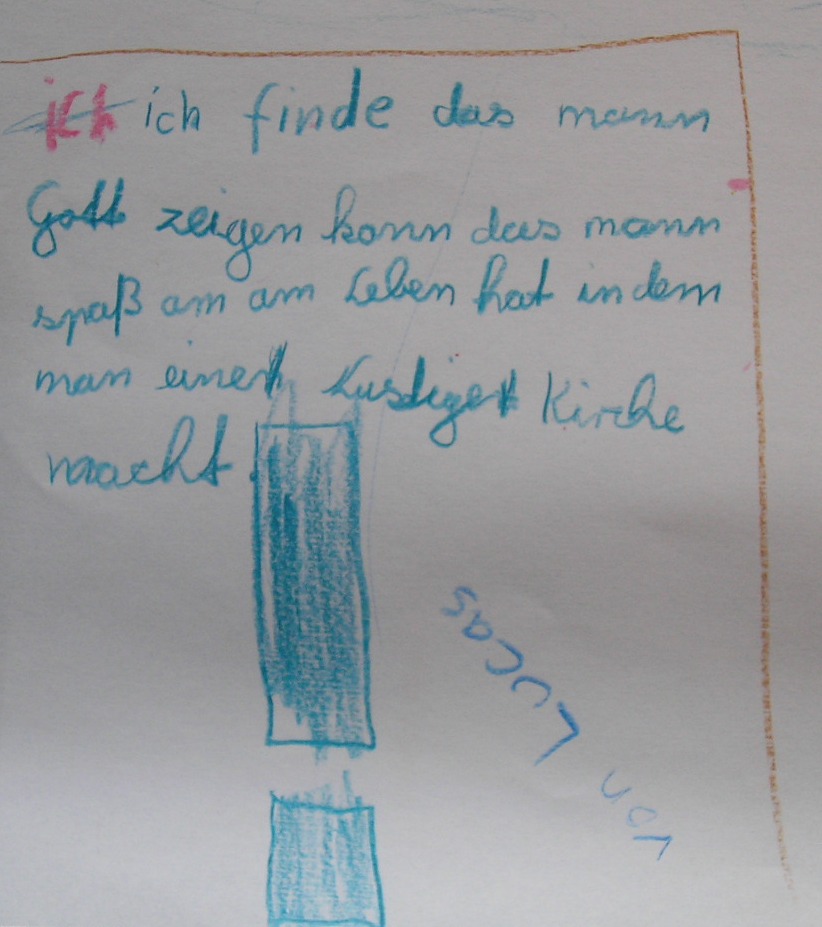 ich ich finde das mann
Gott zeigen kann das mann
spaß am am Leben hat in dem
man einer Lustiger Kirche
macht.
von Lucas